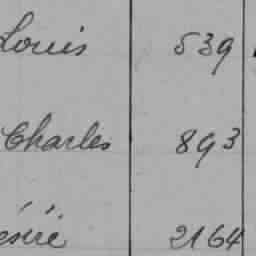 Louis 539
Charles 893
ésiré 2164